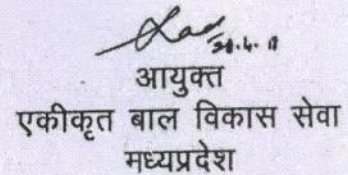 आयुक्त
एकीकृत बाल विकास सेवा
मध्यप्रदेश